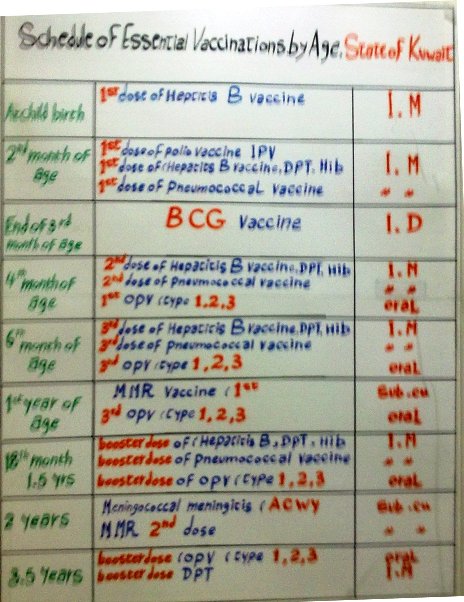 Schedule of Essential Vaccinations by Age, State of Kuwait
At child birth
1st dose of Hepatitis B vaccine
I.M
2nd month of age
1st dose of polio vaccine IPV
1st dose of (Hepatits B vaccine, DPT, Hib
1st dose of Pneumococcal vaccine
I.M
" "
End of 3rd month of age
BCG Vaccine
I.D
4th month of age
2nd dose of Hepatitis B vaccine, DPT, Hib
2nd dose of Pneumococcal vaccine
1st OPV (type 1,2,3
I.M
" "
oral
6th month of age
3rd dose of Hepatitis B vaccine, DPT, Hib
3rd dose of pneumococcal vaccine
3rd OPV (type 1,2,3
I.M
" "
oral
1st year of age
MMR Vaccine (1st
3rd OPV (type 1,2,3
Sub.cu
oral
18th month 1.5 yrs
booster dose of (Hepatitis B, DPT, Hib
booster dose of Pneumococcal vaccine
booster dose of OPV (type 1,2,3
I.M
" "
oral
2 years
Meningococcal meningitis (ACWY
MMR 2nd dose
Sub.cu
" "
3.5 years
booster dose (OPV (type 1,2,3
booster dose DPT
oral
I.M